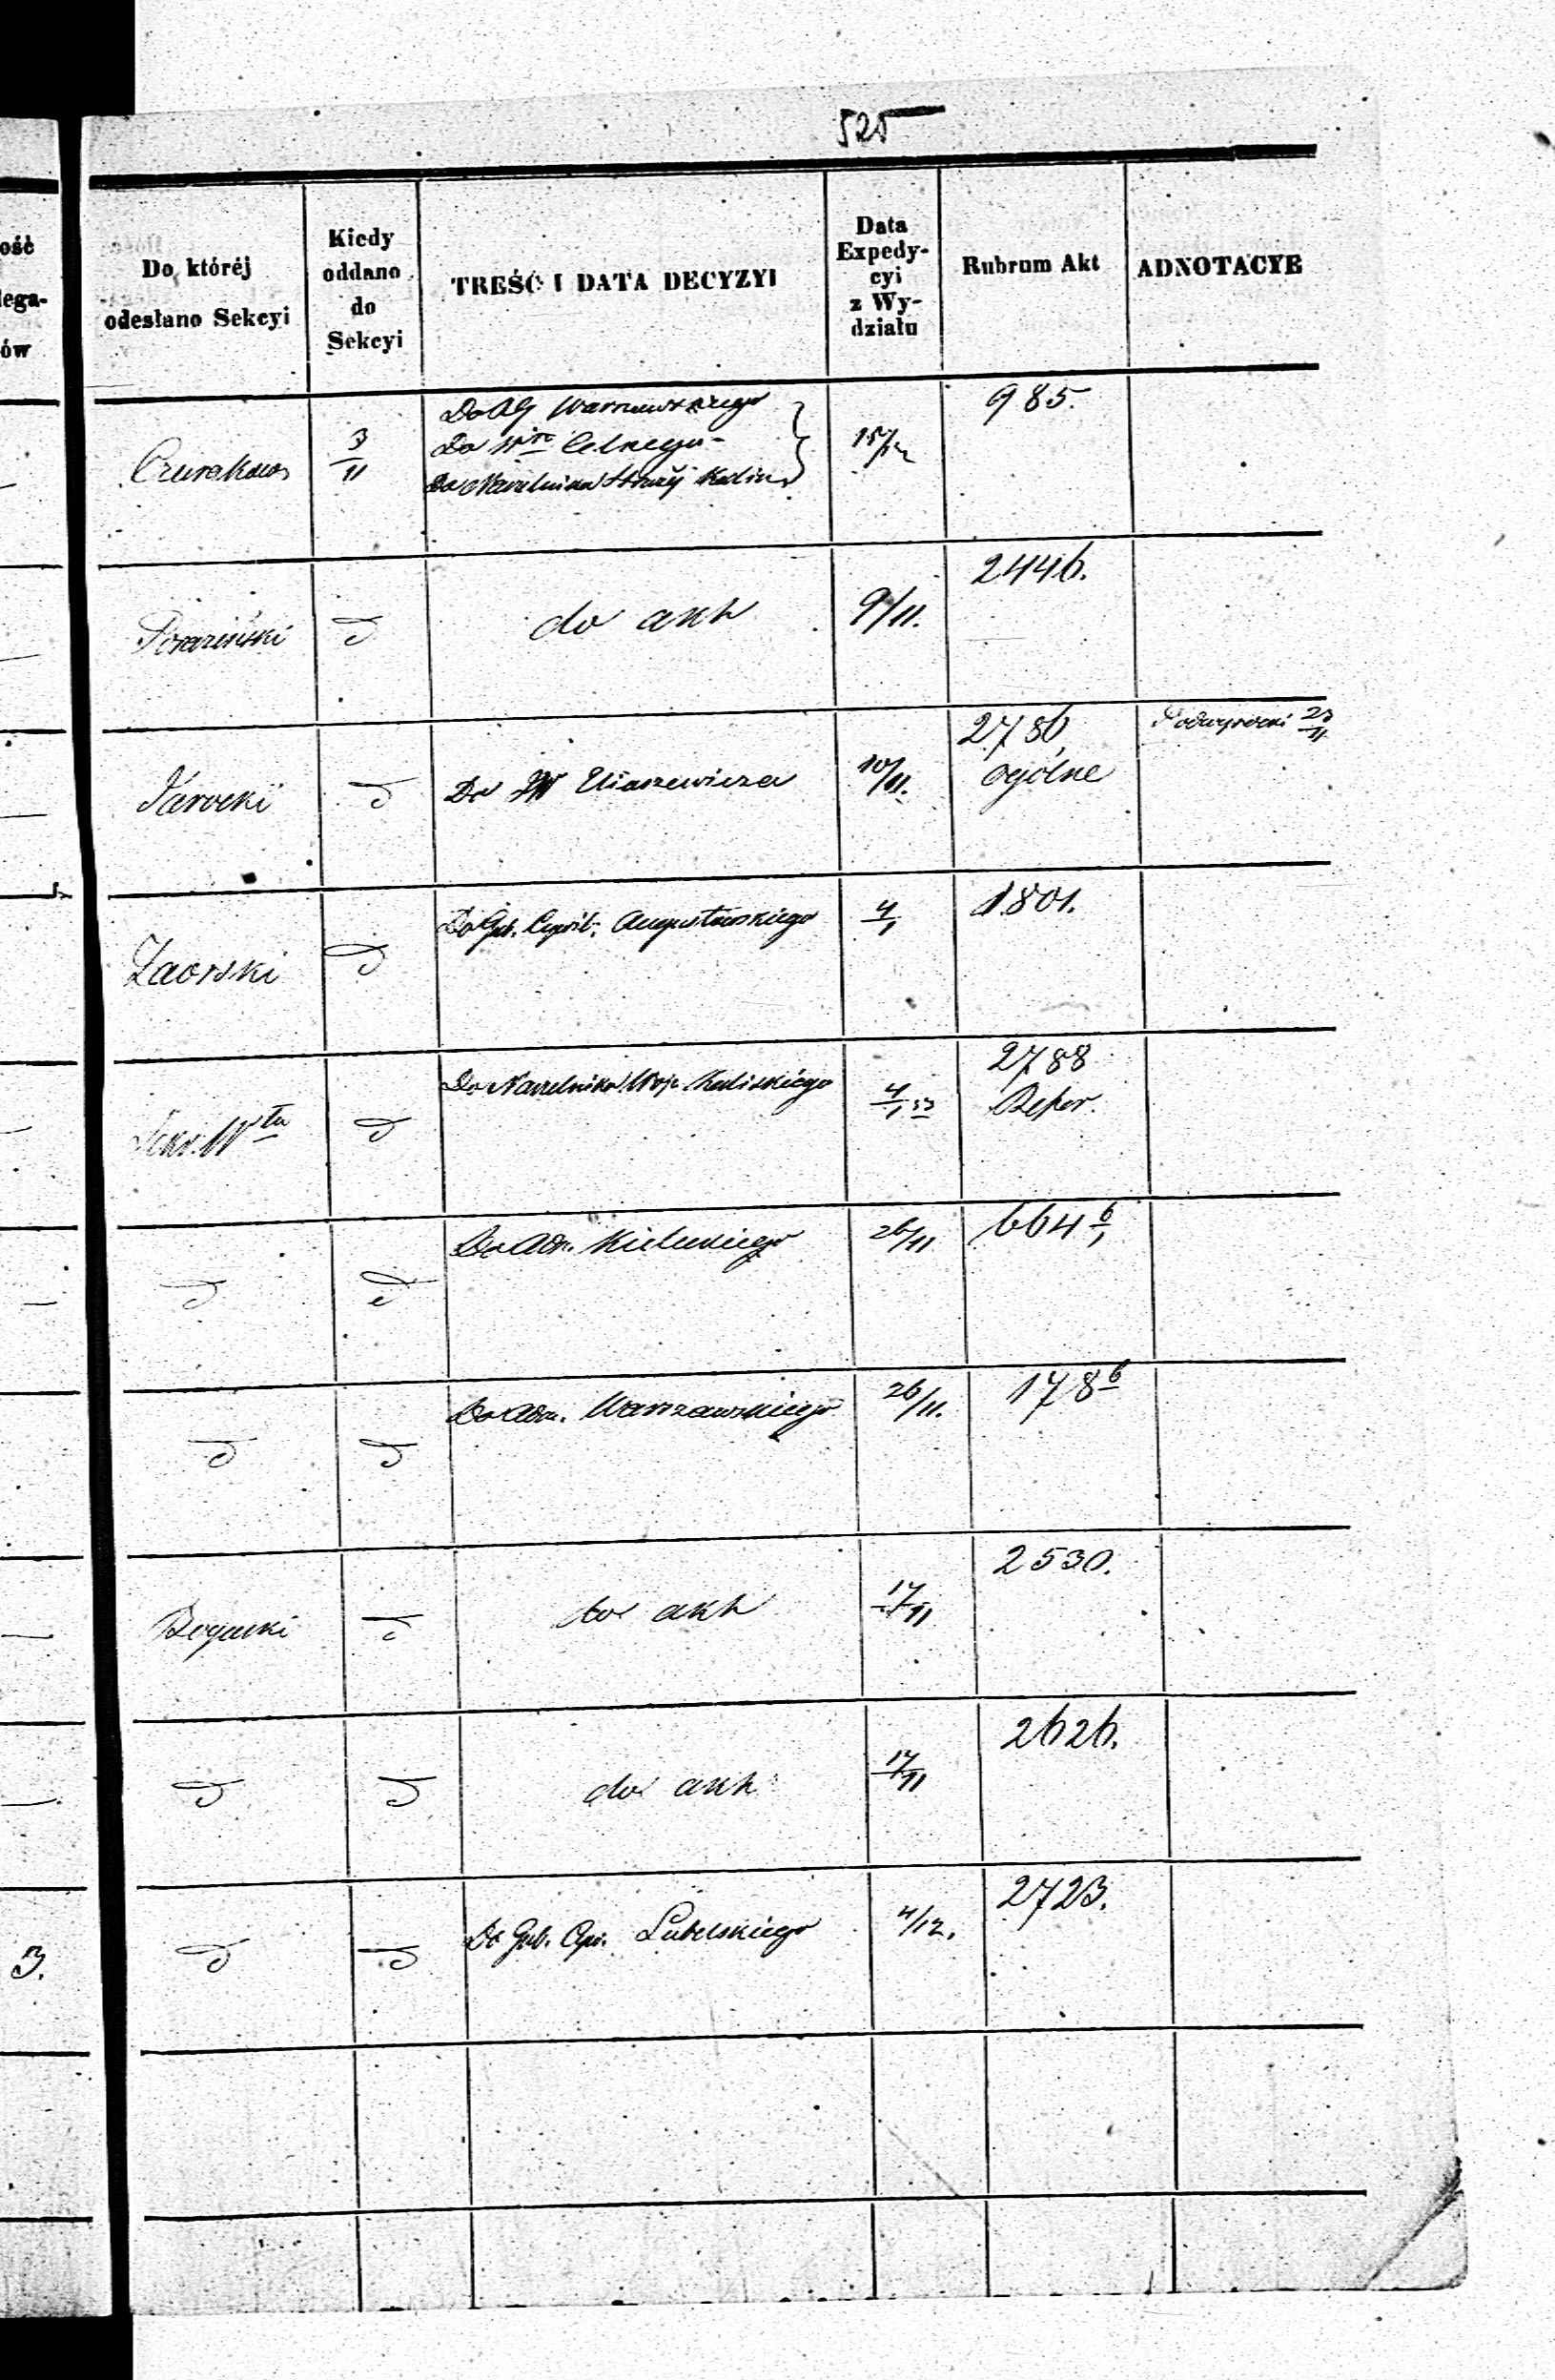 525
ość
lega-
ów
Do któréj
odesłano Sekcyi
Kiedy
oddano
do
Sekcyi
TREŚĆ I DATA DECYZYI
Data
Expedy-
cyi
z Wy-
działu
Rubrum Akt
ADNOTACYE
3/11
Do AG Warszawskiego
Do Celnego
Do Naczelnika Straży
15/12
985.
d
do akt
9/11.
2446.
Jarocki
d
Do JW Eliaszewicza
10/11.
2786
ogólne
23/11
Zaorski
d
Do Gub. Cywil. Augustowskiego
4/1
1801.
Sekr. Wła
d
Do Naczelnika Woje. Kaliskiego
4/1 53
2788
Refer.
d
d
Do Adm. Kieleckiego
26/11
664 6/1
d
d
Do Adm. Warszawskiego
26/11.
178 6
Bogucki
d
do akt
17/11
2530.
d
d
do akt
17/11
2626.
3.
d
d
Do Gub. Cyw. Lubelskiego
4/12.
2723.